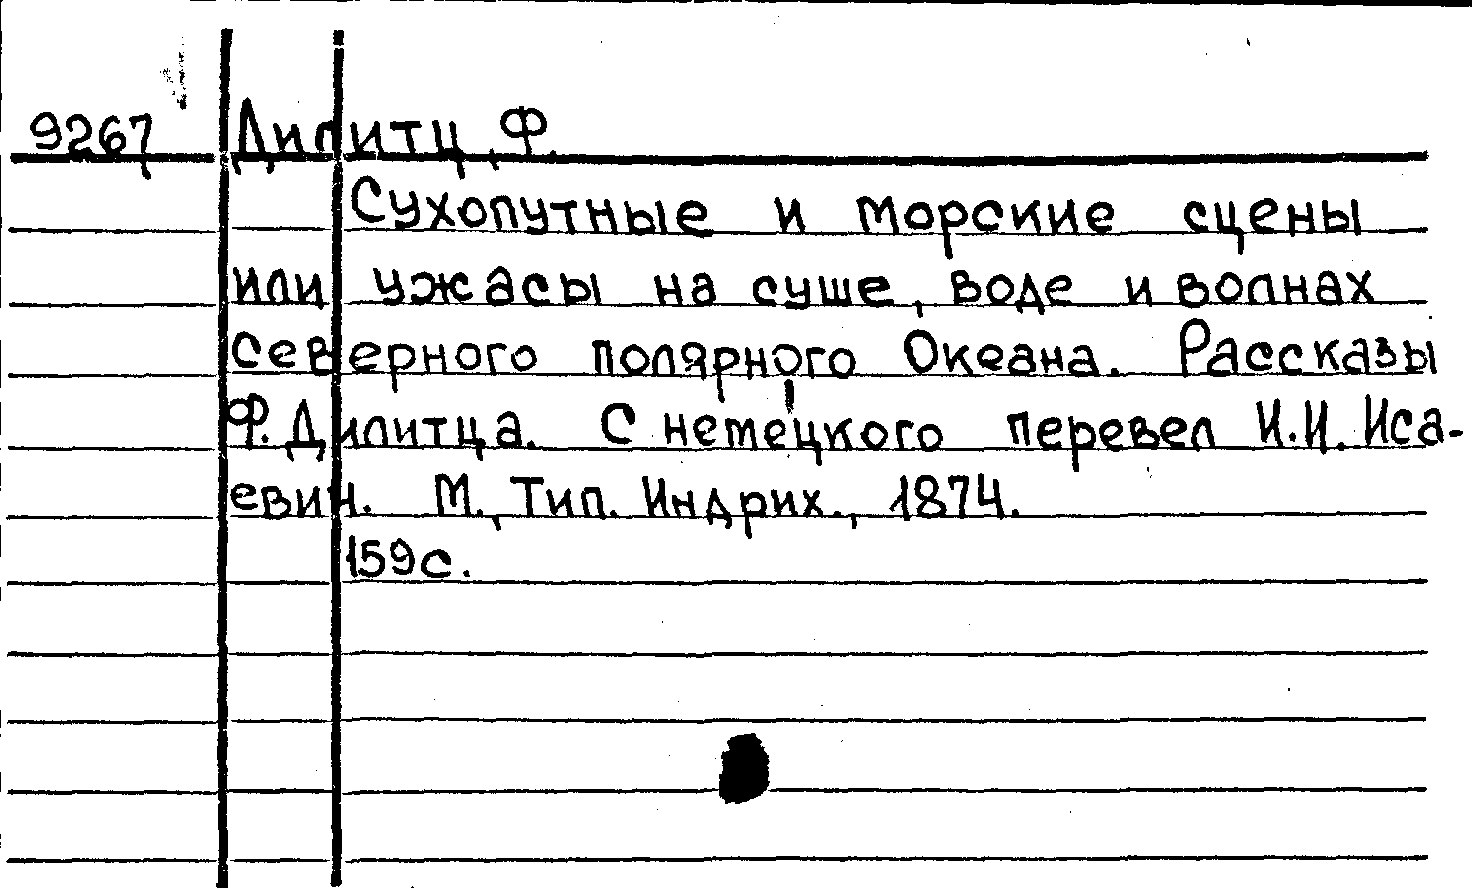 9267 Дилитц, Ф.
Сухопутные и морские сцены
или ужасы на суше, воде и волнах
северного полярного Океана. Рассказы
Ф. Дилитца. С немецкого перевел И.И. Иса-
евич. М., Тип. Индрих., 1874.
159с.